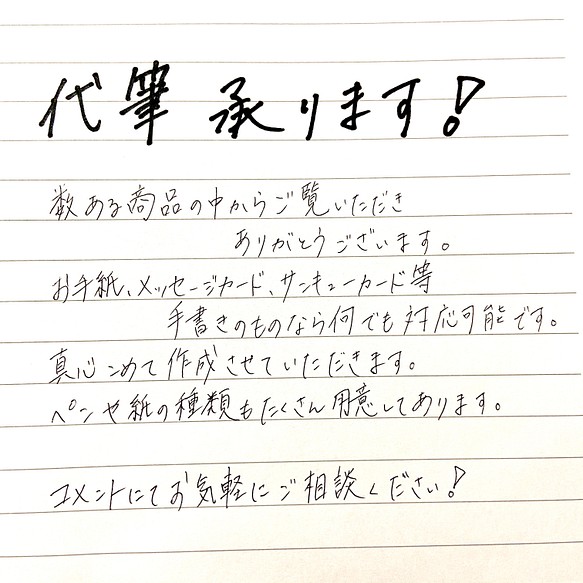 代筆 承ります!
数ある商品の中からご覧いただき
ありがとうございます。
お手紙、メッセージカード、サンキューカード等
手書きのものなら何でも対応可能です。
真心こめて作成させていただきます。
ペンや紙の種類もたくさん用意してあります。
コメントにてお気軽にご相談ください!